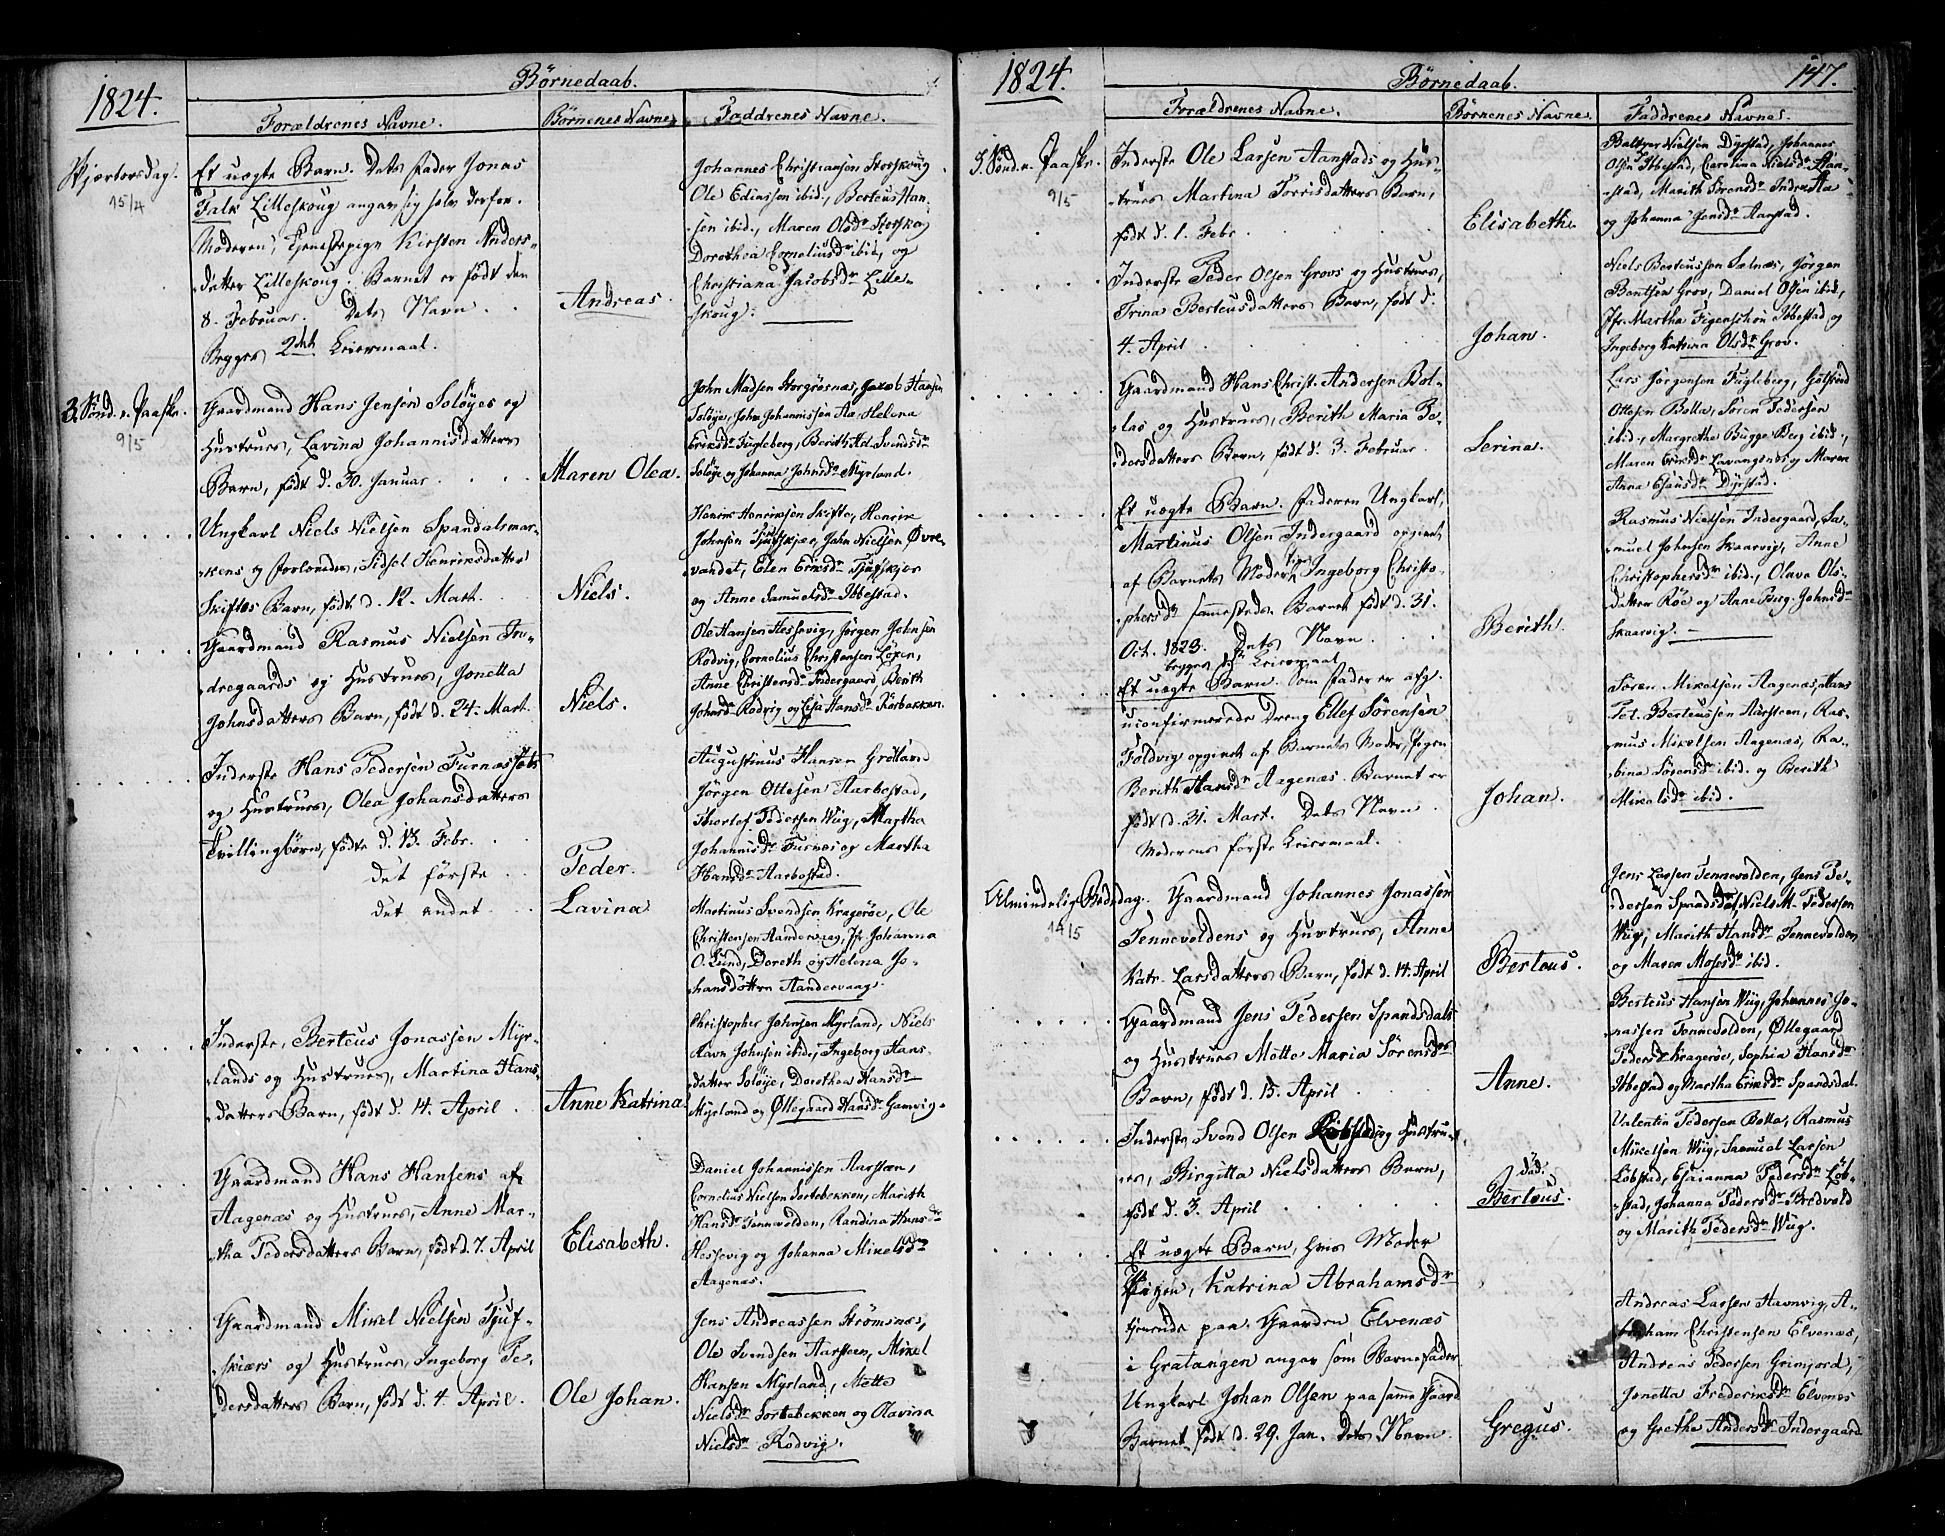 1824.
Børnedaab.
Forældrenes Navne.
Børnenes Navne
Faddrenes Navne.
Skjærtorsdag.
15/4
Et uægte Barn. Dets Fader Jonas
Falk Lilleskoug angav sig selv derfor.
Moderen, Tjenestepige Kirsten Anders-
datter Lilleskoug. Barnet er født den
8. Februar. Dets Navn
Begges 2det Leiermaal.
Andreas.
Johannes Christiansen Storskoug
Ole Eliassen ibid., Berteus Han-
sen ibid., Maren Olsdr Storskoug
Dorothea Corneliusdr ibid., og
Christiana Jacobsdr Lille-
skoug.
3. Sønd. e. Paaske.
9/5
Gaardmand Hans Jensen Soløyes og
Hustrues, Lavina Johannisdatters
Barn, født d. 30. Januar
Maren Olea.
John Madsen Storgrøsnæs, Jacob Hansen
Soløye, John Johannissen Aa, Helena
Eriksdr Fugleberg, Berith Svendsdr
Soløye og Johanna Johnsdr Myrland.
Ungkarl Niels Nielsen Spandalsmar-
kens og Forlovedes, Sidsel Henriksdatter
Skiftes Barn, født d. 12. Mart.
Niels.
Henrik Henriksen Skifte, Henrik
Johnsen Tjufskjær, John Nielsen Øvre-
vandet, Elen Eriksdr Tjufskjær
og Anne Samuelsdr Ibbestad.
Gaardmand Rasmus Nielsen In-
dregaards og Hustrues, Jonetta
Johnsdatters Barn, født d. 24. Mart.
Niels.
Ole Hansen Hessevig, Jørgen Johnsen
Rødvig, Cornelius Christensen Løxen,
Anne Christensdr Indergaard, Berith
Johnsdr Rødvig og Lisa Hansdr Rørbakken.
Inderste Hans Pedersen Furnæssets
og Hustrues, Olea Johansdatters
Tvillingbørn, fødte d. 13. Febr.
det første
det andet
Peder.
Lavina
Augustinus Hansen Grøtland
Jørgen Ottesen Aarbostad,
Thorlef Pedersen Wiig, Martha
Johannisdr Furnæs og Martha
Hansdr Aarbostad.
Martinus Svendsen Kragerøe, Ole
Christensen Aandervaag, Jfr Johanna
O. Lund, Doreth og Helena Jo-
hansdøttre Aandervaag.
Inderste, Berteus Jonassen Myr-
lands og Hustrues, Martina Hans-
datters Barn, født d. 14. April
Anne Katrina.
Christopher Johnsen Myrland, Niels
Ravn Johnsen ibid., Ingeborg Hans-
datter Soløye, Dorothea Hansdr
Myrland og Øllegaard Hansdr Gamvig.
Gaardmand Hans Hansens af
Aagenæs og Hustrues, Anne Mar-
tha Pedersdatters Barn, født d. 7. April
Elisabeth.
Daniel Johannissen Aarsteen,
Cornelius Nielsen Sortebekken, Marith
Hansdr Tennevolden, Randina Hansdr
Hessevig og Johanna Mikelsdr
Aagenæs.
Gaardmand Mikel Nielsen Tjuf-
skiærs og Hustrues, Ingeborg Pe-
dersdatters Barn, født d. 4. April.
Ole Johan.
Jens Andreassen Strømsnæs,
Ole Svendsen Aarsteen, Mikel
Hansen Myrland, Mette
Nielsdr Sortebekken og Olavina
Nielsdr Rødvig.
1824.
Børnedaab.
147.
Forældrenes Navne.
Børnenes Navne.
Faddrenes Navne.
3. Sønd. e. Paaske.
9/5
Inderste Ole Larsen Aanstads og Hus-
trues Martina Torrisdatters Barn,
født d. 1. Febr.
Elisabeth.
Baltzer Nielsen Dyrstad, Johannes
Olsen Ibbestad, Carolina Nielsdr Aan-
stad, Marith Sørensdr
og Johanna Jensdr Aarstad.
Inderste Peder Olsen Grovs og Hustrues,
Trina Berteusdatters Barn, født d.
4. April
Johan.
Niels Berteussen Sælnæs, Jørgen
Bentsen Grov, Daniel Olsen ibid.,
Jfr. Martha Figenschou Ibbestad og
Ingeborg Katrina Olsdr Grov.
Gaardmand Hans Christ. Andersen Bol-
las og Hustrues, Berith Maria Pe-
dersdatters Barn, født d. 3. Februar
Serina.
Lars Jørgensen Fugleberg,
Ottesen Bolla, Søren Pedersen
ibid., Margrethe Bugge Berg ibid.,
Maren Eriksdr Lavangsnæs og Maren
Anna Dyrstad.
Et uægte Barn. Faderen Ungkarl,
Martinus Olsen Indergaard opgivet
af Barnets Moder Pigen Ingeborg Christo-
phersdr sammesteds. Barnet født d. 31.
Oct. 1823. Dets Navn
begges Leiermaal
Berith.
Rasmus Nielsen Indergaard, Sa-
muel Johnsen Skaarvig, Anne
Christophersdr ibid., Olava Ols-
datter Røe og Anne Birg. Johnsdr
Skaarvig.
Et uægte Barn. Som Fader er afg.
uconfirmerede Dreng Ellef Sørensen
Foldvig opgivet af Barnets Moder, Pigen
Berith Hansdr Aagenæs. Barnet er
født d. 31. Mart. Dets Navn
Moderens første Leiermaal.
Johan.
Søren Mikelsen Aagenæs, Hans
Pet. Berteussen Aarsteen, Ras-
mus Mikelsen Aagenæs, Ra-
bina Sørensdr ibid. og Berith
Mikelsdr ibid.
Almindelig Bededag.
14/5
Gaardmand Johannes Jonassen
Tennevoldens og Hustrues, Anne
Katr. Larsdatters Barn, født d. 14. April
Berteus.
Jens Larsen Tennevolden, Jens Pe-
dersen Spandsdal, Niels M. Pedersen
Wiig, Marith Hansdr Tennevolden
og Maren Mosesdr ibid.
Gaardmand Jens Pedersen Spandsdals
og Hustrues Mette Maria Sørensdrs
Barn, født d. 15. April
Anne.
Berteus Hansen Wiig, Johannes Jo-
nassen Tennevolden, Øllegaard
Pedersdr Kragerøe, Sophia Hansdr
Ibbestad og Martha Eriksdr Spandsdal.
Inderste Svend Olsen Løbstad og Hustru-
es, Birgitta Nielsdatters Barn,
født d. 3. April
død.
Berteus.
Valentin Pedersen Bolla, Rasmus
Mikelsen Wiig, Samuel Larsen
Løbstad, Esaianna Pedersdr Løb-
stad, Johanna Pedersdr Bredvold
og Marith Pedersdr Wiig.
Et uægte Barn, hvis Moder
Pigen, Katrina Abrahamsdr
tjenende paa Gaarden Elvenæs
i Gratangen angav som Barnefader
Ungkarl Johan Olsen paa samme Gaard
Barnet født d. 29. Jan. Dets Navn
Gregus.
Andreas Larsen Havnvig, A-
braham Christensen Elvenæs,
Andreas Pedersen Grimjord,
Jonetta Frederiksdr Elvenæs
og Grethe Andersdr Indergaard